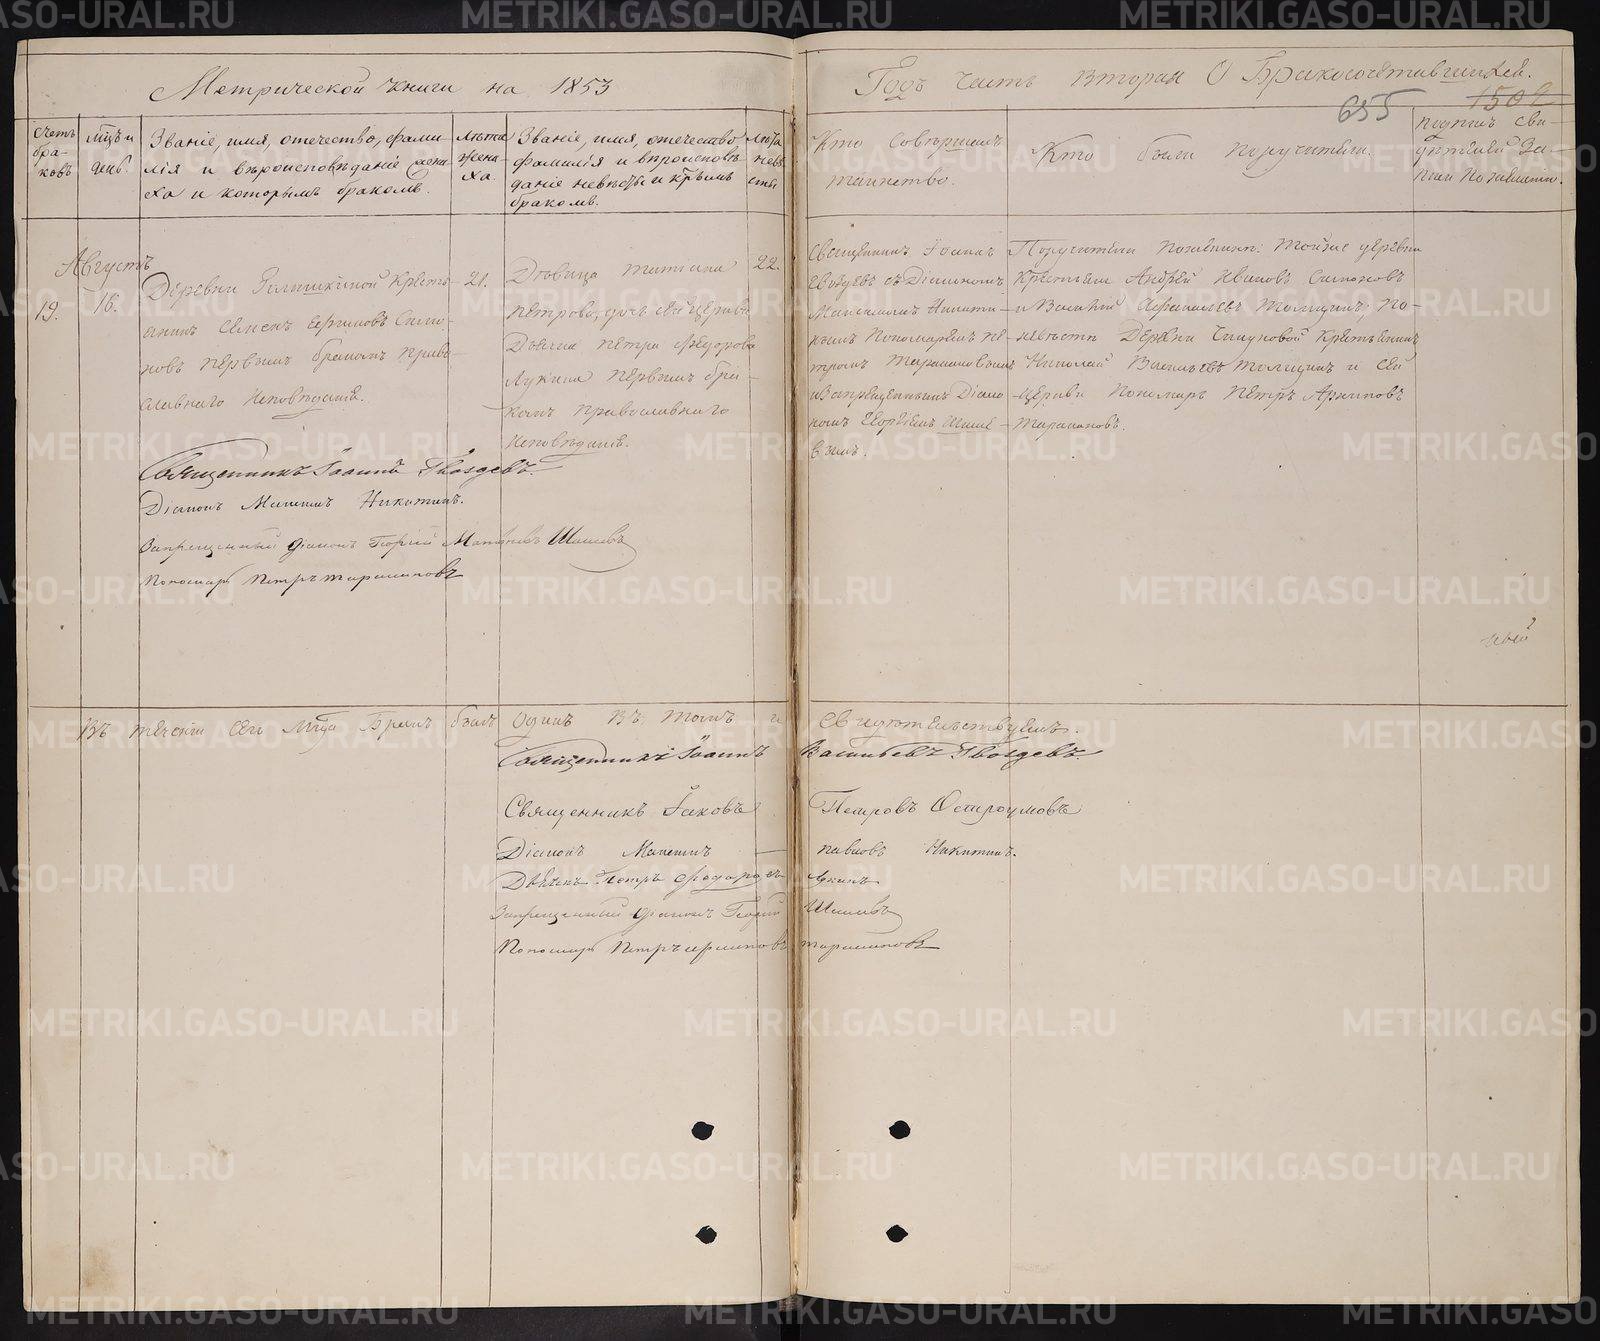 Метрической книги на 1853
Годъ часть вторая О Бракосочетавшихся.
655
1502
Счетъ браковъ
мѣцъ и день.
Званіе, имя, отечество, фамилія и вѣроисповѣданіе жениха и которымъ бракомъ.
Лѣта жениха.
Званіе, имя, отечество, фамилія и вѣроисповѣданіе невѣсты и которымъ бракомъ.
Лѣта невѣсты
Кто совершалъ таинство.
Кто были поручители.
Подпись свидѣтелей записи по желанію.
Августъ
19.
16.
Деревни
крестьянинъ Семенъ
первымъ бракомъ православнаго исповѣданія.
21.
Дѣвица Татіана
Петрова, дочь сей церкви
Дьячка Петра Федорова
Лукина первымъ бракомъ православнаго
исповѣданія.
22.
Священникъ Іоаннъ
Гвоздевъ съ Діакономъ
Максимомъ Никитинымъ Пономаремъ Петромъ Таракановымъ
и Запрещеннымъ Діакономъ Георгіемъ
Поручители по женихѣ: тойже деревни
крестьяне Андрей Ивановъ
и Василій Афанасьевъ по
невѣстѣ Деревни крестьянинъ
Николай Васильевъ и сей
церкви Пономарь Петръ Архиповъ
Таракановъ.
Священникъ Іоаннъ Гвоздевъ.
Діаконъ Максимъ Никитинъ.
Запрещенный Діаконъ Георгій
Пономарь Петръ Таракановъ
Въ теченіи сего Мѣца Бракъ былъ Одинъ Въ томъ и свидѣтельствуемъ.
Священникъ Іоаннъ Васильевъ Гвоздевъ.
Священникъ Іаковъ Петровъ Остроумовъ
Діаконъ Максимъ — Павловъ Никитинъ.
Дьячекъ Петръ Федоровъ Лукинъ
Запрещенный Діаконъ Георгій
Пономарь Петръ Архиповъ Таракановъ
METRIKI.GASO-URAL.RU